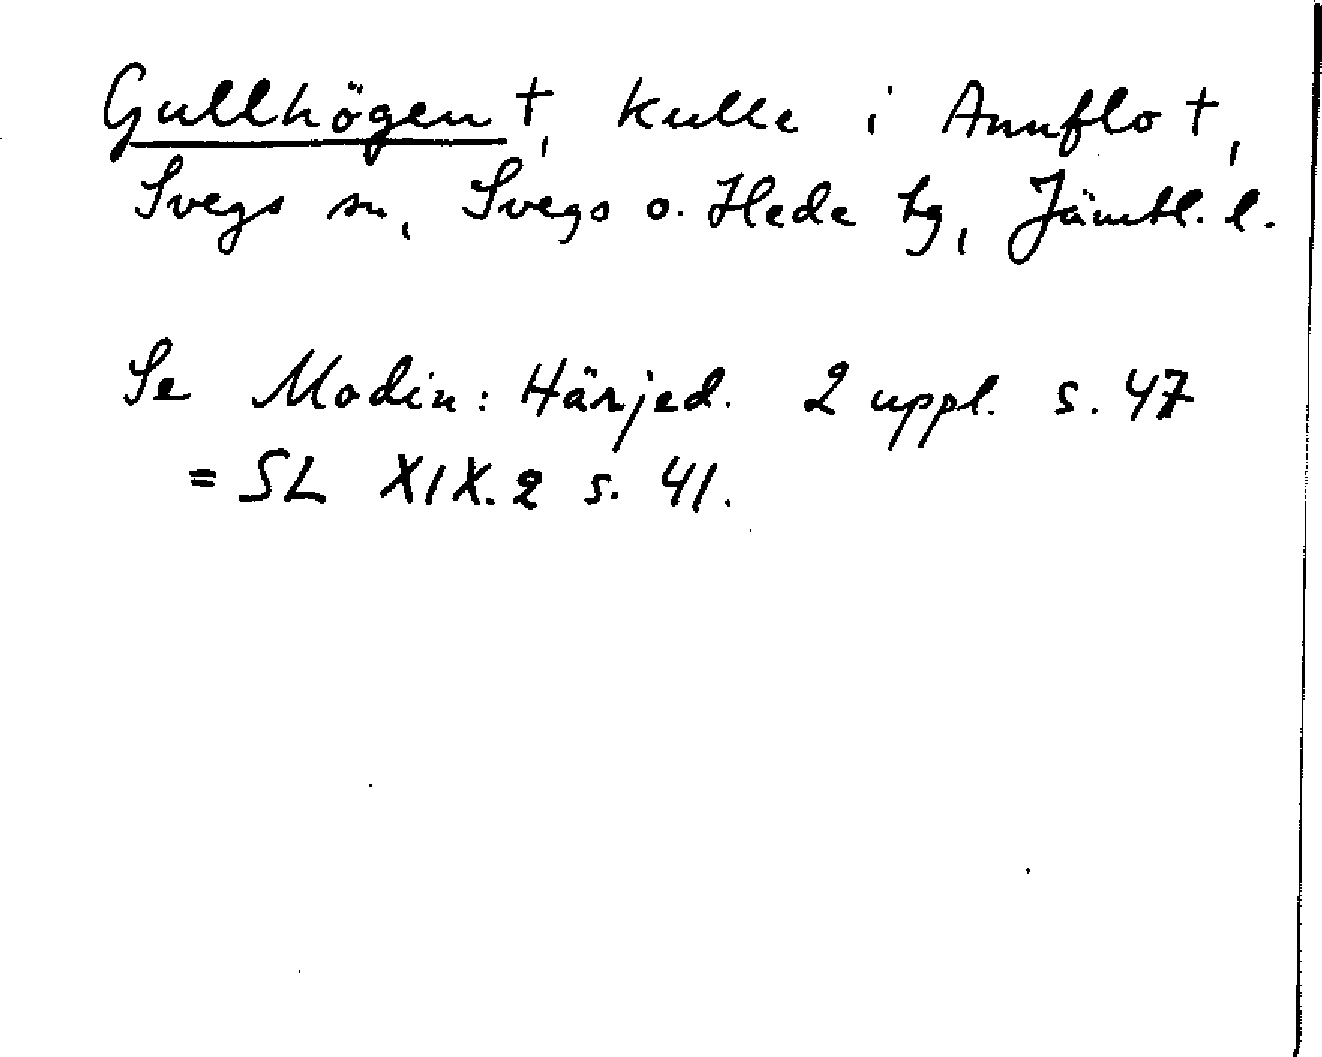 Gullhögen †, kulle i Annflo †,
Svegs sn, Svegs o. Hede tg, Jämtl. l.
Se Modin: Härjed. 2 uppl. s. 47
= SL XIX.2 s. 41.